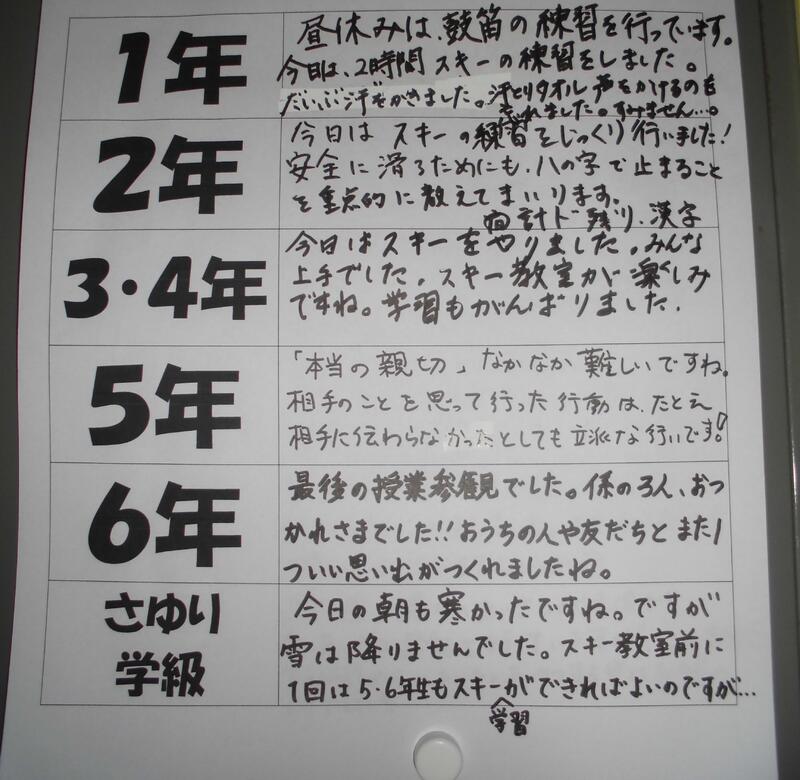 1年
昼休みは、鼓笛の練習を行っています。
今日は、2時間スキーの練習をしました。
だいぶ汗をかきました。汗とりタオル声をかけるのを
忘れました。すみません…。
2年
今日はスキーの練習をじっくり行いました!
安全に滑るためにも、ハの字で止まること
を重点的に教えてまいります。
計ド残り、漢字
3・4年
今日はスキーをやりました。みんな
上手でした。スキー教室が楽しみ
ですね。学習もがんばりました.
5年
「本当の親切」なかなか難しいですね。
相手のことを思って行った行動は、たとえ
相手に伝わらなかったとしても立派な行いです!
6年
最後の授業参観でした。係の3人、おつ
かれさまでした!!おうちの人や友だちとまた1
ついい思い出がつくれましたね。
さゆり
学級
今日の朝も寒かったですね。ですが
雪は降りませんでした。スキー教室前に
1回は5・6年生もスキー学習ができればよいのですが…